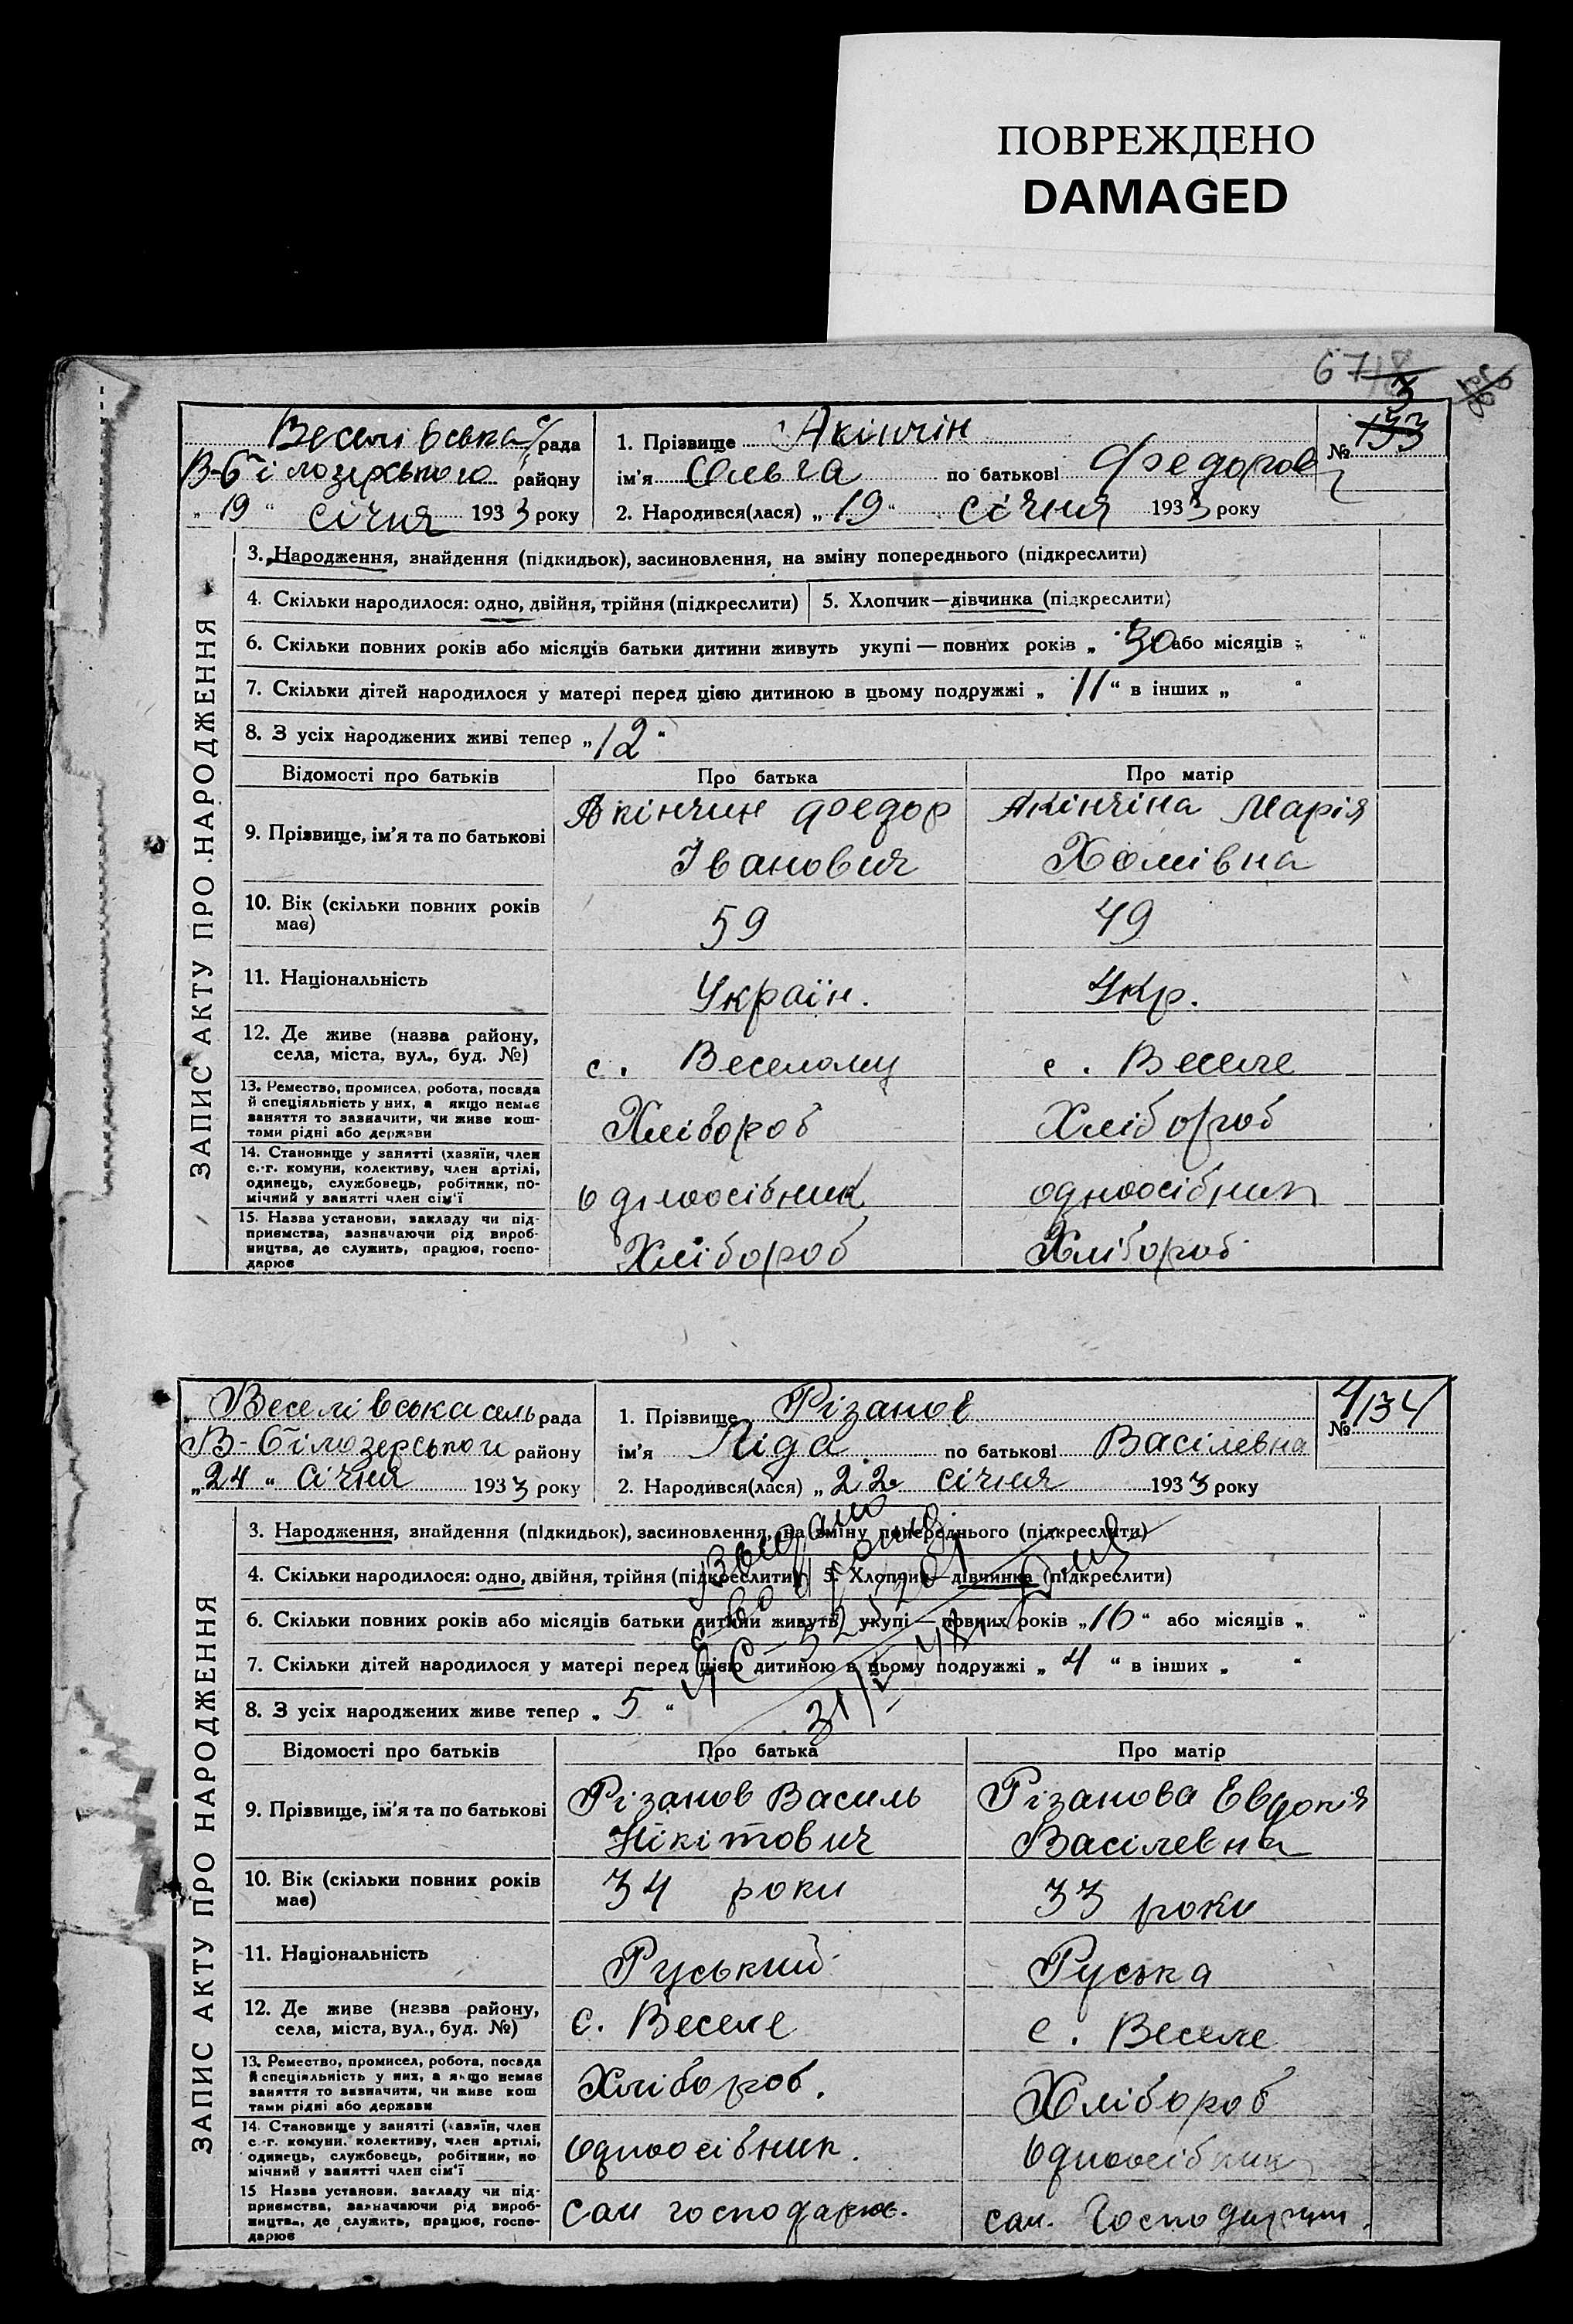 ПОВРЕЖДЕНО
DAMAGED
67
3
Веселівська с/рада
В-Білозерського району
„19“ січня 1933 року
1. Прізвище Акінчін
№ 133
ім'я Ольга по батькові Федоров
2. Народився(лася) „19“ січня 1933 року
ЗАПИС АКТУ ПРО НАРОДЖЕННЯ
3. Народження, знайдення (підкидьок), засиновлення, на зміну попереднього (підкреслити)
4. Скільки народилося: одно, двійня, трійня (підкреслити) 5. Хлопчик—дівчинка (підкреслити)
6. Скільки повних років або місяців батьки дитини живуть укупі — повних років „30 або місяців „ “
7. Скільки дітей народилося у матері перед цією дитиною в цьому подружжі „11“ в інших „ “
8. З усіх народжених живі тепер „12“
Відомості про батьків Про батька Про матір
9. Прізвище, ім'я та по батькові
Акінчин Федор
Іванович
Акінчіна Марія
Хомівна
10. Вік (скільки повних років
має)
59
49
11. Національність
Україн.
Укр.
12. Де живе (назва району,
села, міста, вул., буд. №)
с. Веселому
с. Веселе
13. Ремество, промисел, робота, посада
й спеціяльність у них, а якщо немає
заняття то зазначити, чи живе кош-
тами рідні або держави
Хлібороб
Хлібороб
14. Становище у занятті (хазяїн, член
с.-г. комуни, колективу, член артілі,
одинець, службовець, робітник, по-
мічний у занятті член сім'ї
одноосібник
одноосібник
15. Назва установи, закладу чи під-
приємства, зазначаючи рід вироб-
ництва, де служить, працює, госпо-
дарює
Хлібороб
Хлібороб
Веселівська сель рада
В-Білозерського району
„24“ січня 1933 року
1. Прізвище Різанов
4
№ 134
ім'я Ліда по батькові Васілевна
2. Народився(лася) „22“ січня 1933 року
ЗАПИС АКТУ ПРО НАРОДЖЕННЯ
3. Народження, знайдення (підкидьок), засиновлення, на зміну попереднього (підкреслити)
4. Скільки народилося: одно, двійня, трійня (підкреслити) 5. Хлопчик—дівчинка (підкреслити)
6. Скільки повних років або місяців батьки дитини живуть укупі — повних років „16“ або місяців „ “
7. Скільки дітей народилося у матері перед цією дитиною в цьому подружжі „4“ в інших „ “
8. З усіх народжених живе тепер „5“
Відомості про батьків Про батька Про матір
9. Прізвище, ім'я та по батькові
Різанов Василь
Нікітович
Різанова Евдокія
Васілевна
10. Вік (скільки повних років
має)
34 роки
33 роки
11. Національність
Руський
Руська
12. Де живе (назва району,
села, міста, вул., буд. №)
с. Веселе
с. Веселе
13. Ремество, промисел, робота, посада
й спеціяльність у них, а якщо немає
заняття то зазначити, чи живе кош
тами рідні або держави
Хлібороб.
Хлібороб
14. Становище у занятті (хазяїн, член
с.-г. комуни, колективу, член артілі,
одинець, службовець, робітник, по
мічний у занятті член сім'ї
Одноосібник.
Одноосібник
15 Назва установи, закладу чи під-
приємства, зазначаючи рід вироб-
ництва, де служить, працює, госпо-
дарює
Сам господарює.
Сам.